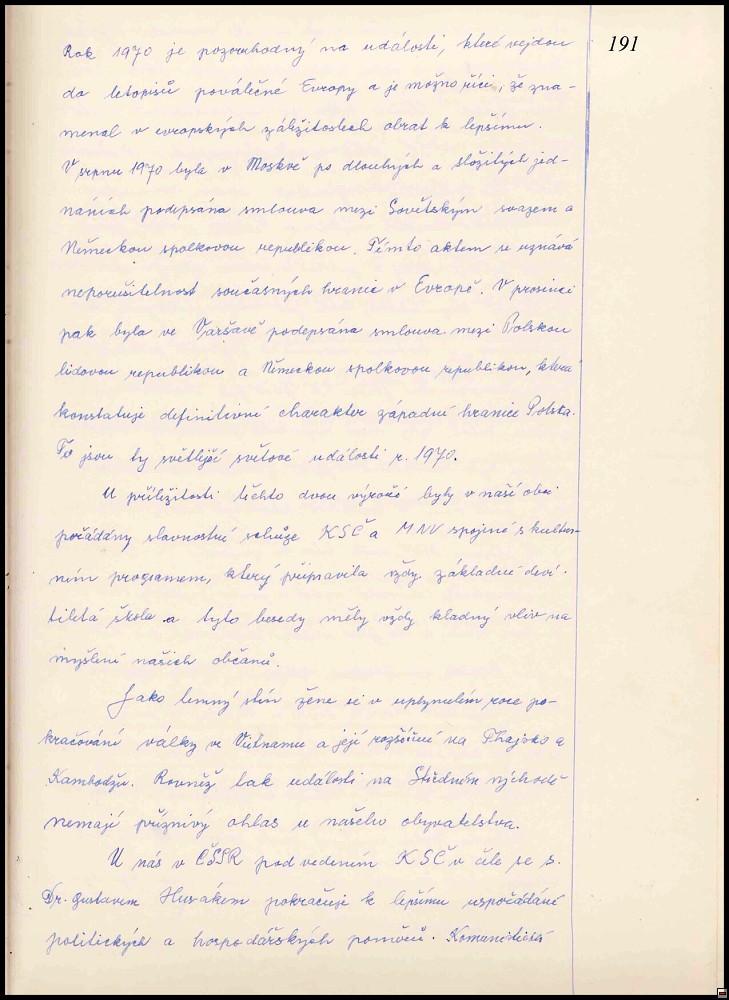 191
Rok 1970 je pozoruhodný na události, které vejdou
do letopisů poválečné Evropy a je možno říci, že zna-
menal v evropských záležitostech obrat k lepšímu.
V srpnu 1970 byla v Moskvě po dlouhých a složitých jed-
náních podepsána smlouva mezi Sovětským svazem a
Německou spolkovou republikou. Tímto aktem se uznává
neporušitelnost současných hranic v Evropě. V prosinci
pak byla ve Varšavě podepsána smlouva mezi Polskou
lidovou republikou a Německou spolkovou republikou, která
konstatuje definitivní charakter západní hranice Polska.
To jsou ty světlejší světové události r. 1970.
U příležitosti těchto dvou výročí byly v naší obci
pořádány slavnostní schůze KSČ a MNV spojené s kultur-
ním programem, který připravila vždy základní deví-
tiletá škola a tyto besedy měly vždy kladný vliv na
myšlení našich občanů.
Jako temný stín žene se v uplynulém roce po-
kračování války ve Vietnamu a její rozšíření na Thajsko a
Kambodžu. Rovněž tak události na Středním východě
nemají příznivý ohlas u našeho obyvatelstva.
U nás v ČSSR pod vedením KSČ v čele se s.
Dr. Gustavem Husákem pokračuje k lepšímu uspořádání
politických a hospodářských poměrů. Komunistická